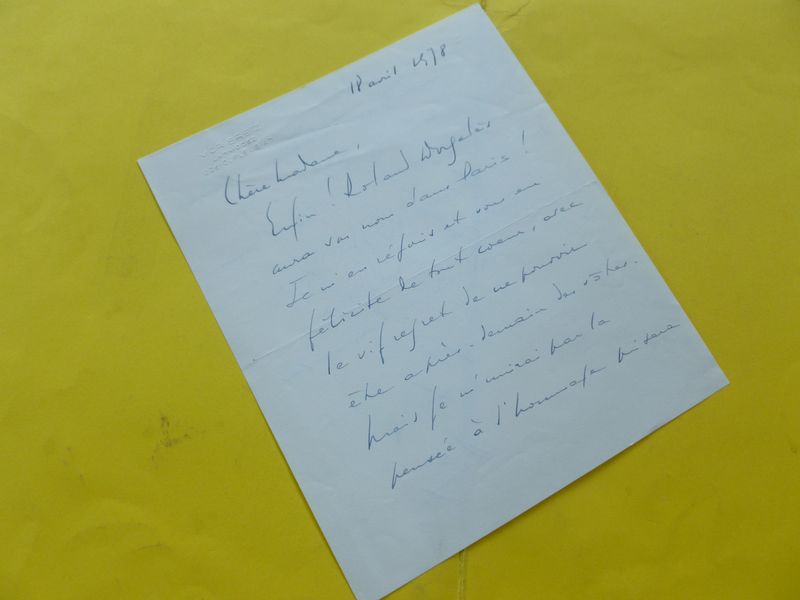 18 avril 1978
Chère Madame,
Enfin ! Roland Dorgelès
aura son nom dans Paris !
Je m'en réjouis et vous en
félicite de tout coeur, avec
le vif regret de ne pouvoir
être après-demain des vôtres.
Mais je m'unirai par la
pensée à l'hommage qui sera